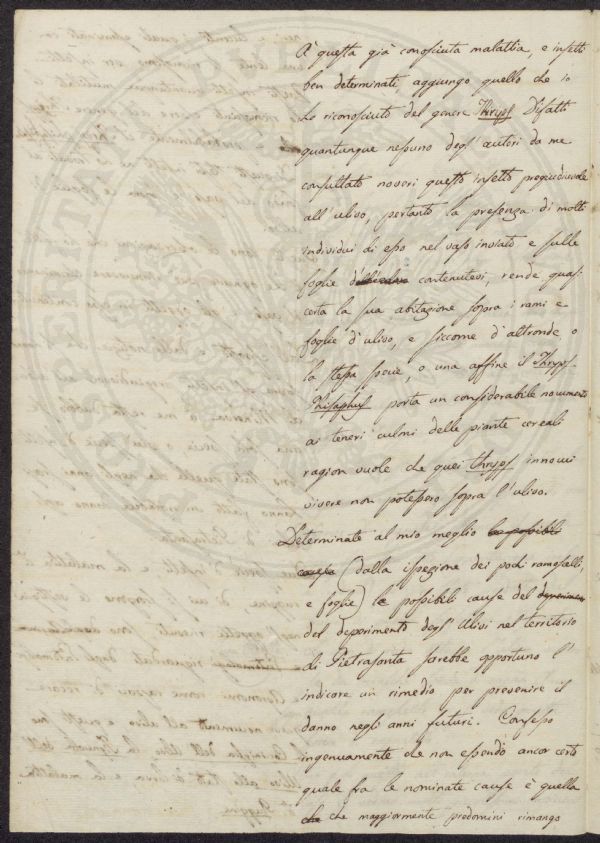 A questa già conosciuta malattia, e insetti
ben determinati, aggiungo quello che io
ho riconosciuto del genere Thryps Difatti
quantunque nessuno degl' autori da me
consultato noveri questo insetto pregiudicievole
all' ulivo, pertanto la presenza di molti
individui di esso nel vaso inviato e sulle
foglie dell'ulivo contenutevi, rende quasi
certa la sua abitazione sopra i rami e
foglie d'ulivo, e siccome d'altronde o
la stessa specie, o una affine il Thryps
Phisaphus porta un considerabile nocumento
ai teneri culmi delle piante cereali
ragion vuole che quei thryps innocui
vivere non potessero sopra l'ulivo.
Determinate al mio meglio le possibili
cause (dalla ispezione dei pochi ramoscelli,
e foglie) le possibili cause del
del deperimento degl' Ulivi nel territorio
di Pietrasanta sarebbe opportuno l'
indicare un rimedio per prevenire il
danno negli anni futuri. Confesso
ingenuamente che non essendo ancor certo
quale fra le nominate cause è quella
che che maggiormente predomini rimango